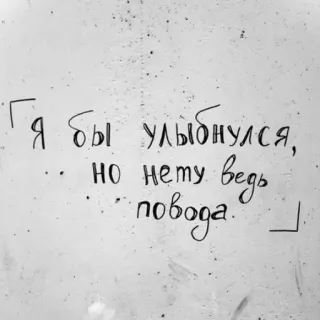 「Я бы улыбнулся,
но нету ведь
повода.」